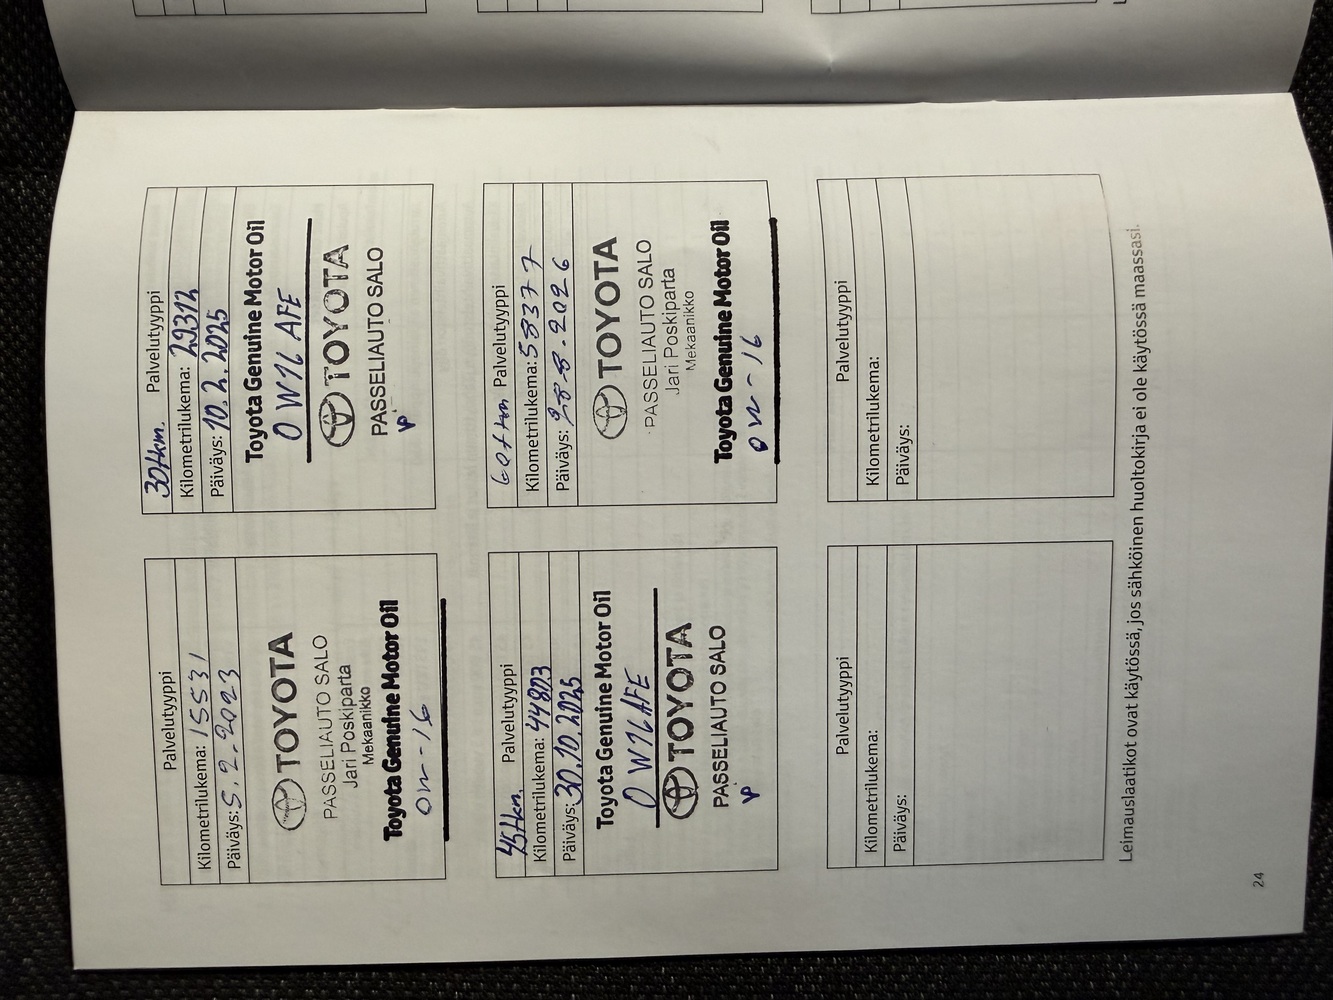 Palvelutyyppi
Kilometrilukema: 15531
Päiväys: 5.2.2023
TOYOTA
PASSELIAUTO SALO
Jari Poskiparta
Mekaanikko
Toyota Genuine Motor Oil
0W-16
30tkm. Palvelutyyppi
Kilometrilukema: 29312
Päiväys: 10.2.2025
Toyota Genuine Motor Oil
0W16 AFE
TOYOTA
PASSELIAUTO SALO
45tkm. Palvelutyyppi
Kilometrilukema: 44803
Päiväys: 30.10.2025
Toyota Genuine Motor Oil
0W16 AFE
TOYOTA
PASSELIAUTO SALO
60tkm Palvelutyyppi
Kilometrilukema: 58377
Päiväys: 28-8-2026
TOYOTA
PASSELIAUTO SALO
Jari Poskiparta
Mekaanikko
Toyota Genuine Motor Oil
0W-16
Palvelutyyppi
Kilometrilukema:
Päiväys:
Palvelutyyppi
Kilometrilukema:
Päiväys:
Leimauslaatikot ovat käytössä, jos sähköinen huoltokirja ei ole käytössä maassasi.
24